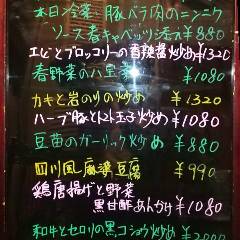 本日冷菜 豚バラ肉のニンニク
ソース春キャベツ添え ¥880
エビとブロッコリーの香辣醤炒め ¥1320
春野菜の八宝菜 ¥1080
カキと岩のりの炒め ¥1320
ハーブ豚とトマト玉子炒め ¥1080
豆苗のガーリック炒め ¥880
四川風麻婆豆腐 ¥990
鶏唐揚げと野菜
黒甘酢あんかけ ¥1080
和牛とセロリの黒コショウ炒め ¥2000